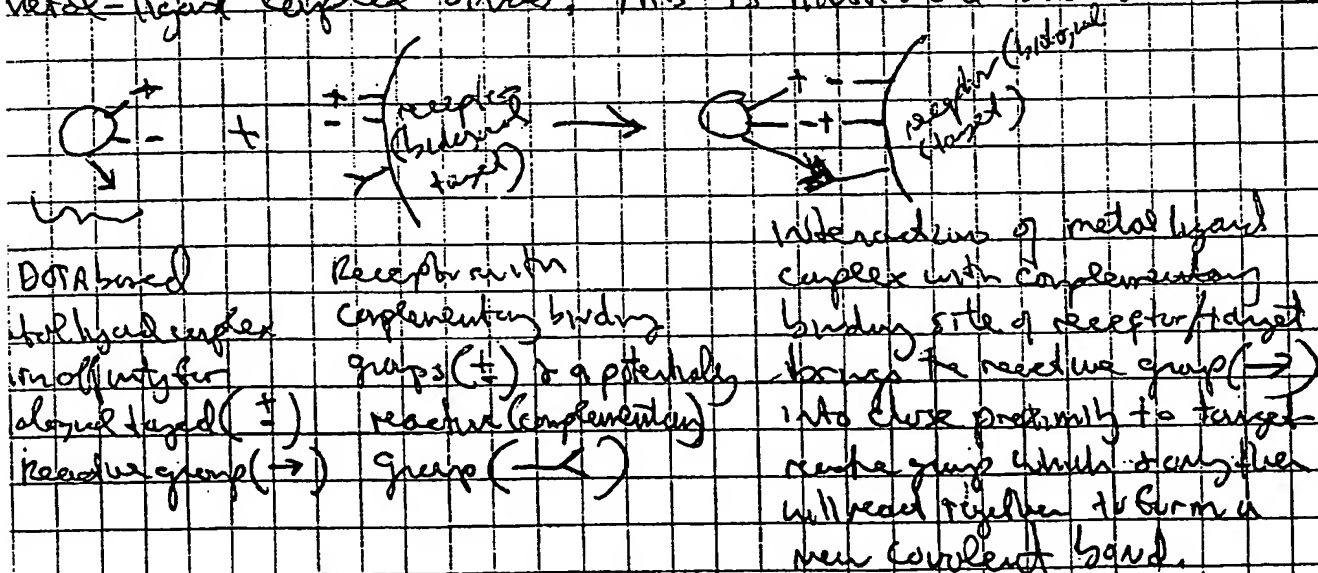 metal-ligand complex binds. This is
+
-
+
+ -
- -
receptor
(biological
target)
+ -
- +
receptor (biological
target)
DOTA based
ligand complex
affinity for
target (±)
reactive group (→)
Receptor with
complementary binding
groups (±) & a potentially
reactive (complementary)
group
Interactions of metal ligand
complex with complementary
binding site of receptor/target
brings the reactive group (→)
into close proximity to target
group which then
will react together to form a
new covalent bond.